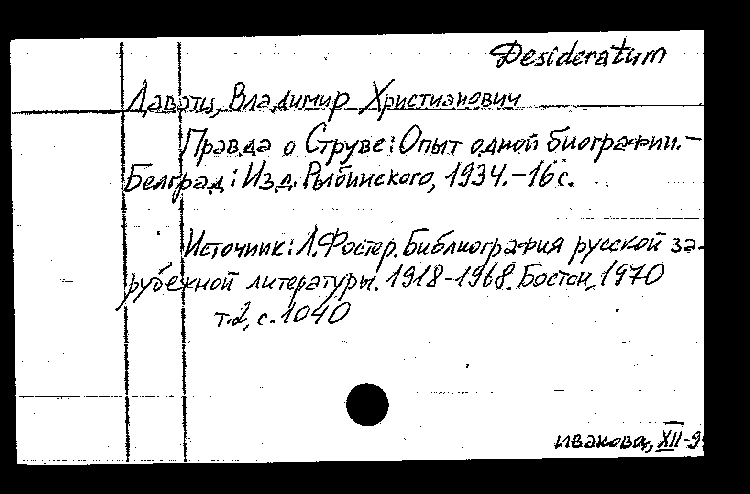 Desideratum
Даватц, Владимир Христианович
Правда о Струве: Опыт одной биографии.–
Белград: Изд. Рыбинского, 1934.–16 с.
Источник: Л. Фостер. Библиография русской за-
рубежной литературы. 1918-1968. Бостон, 1970
т.2, с.1040
иванова, XII-9